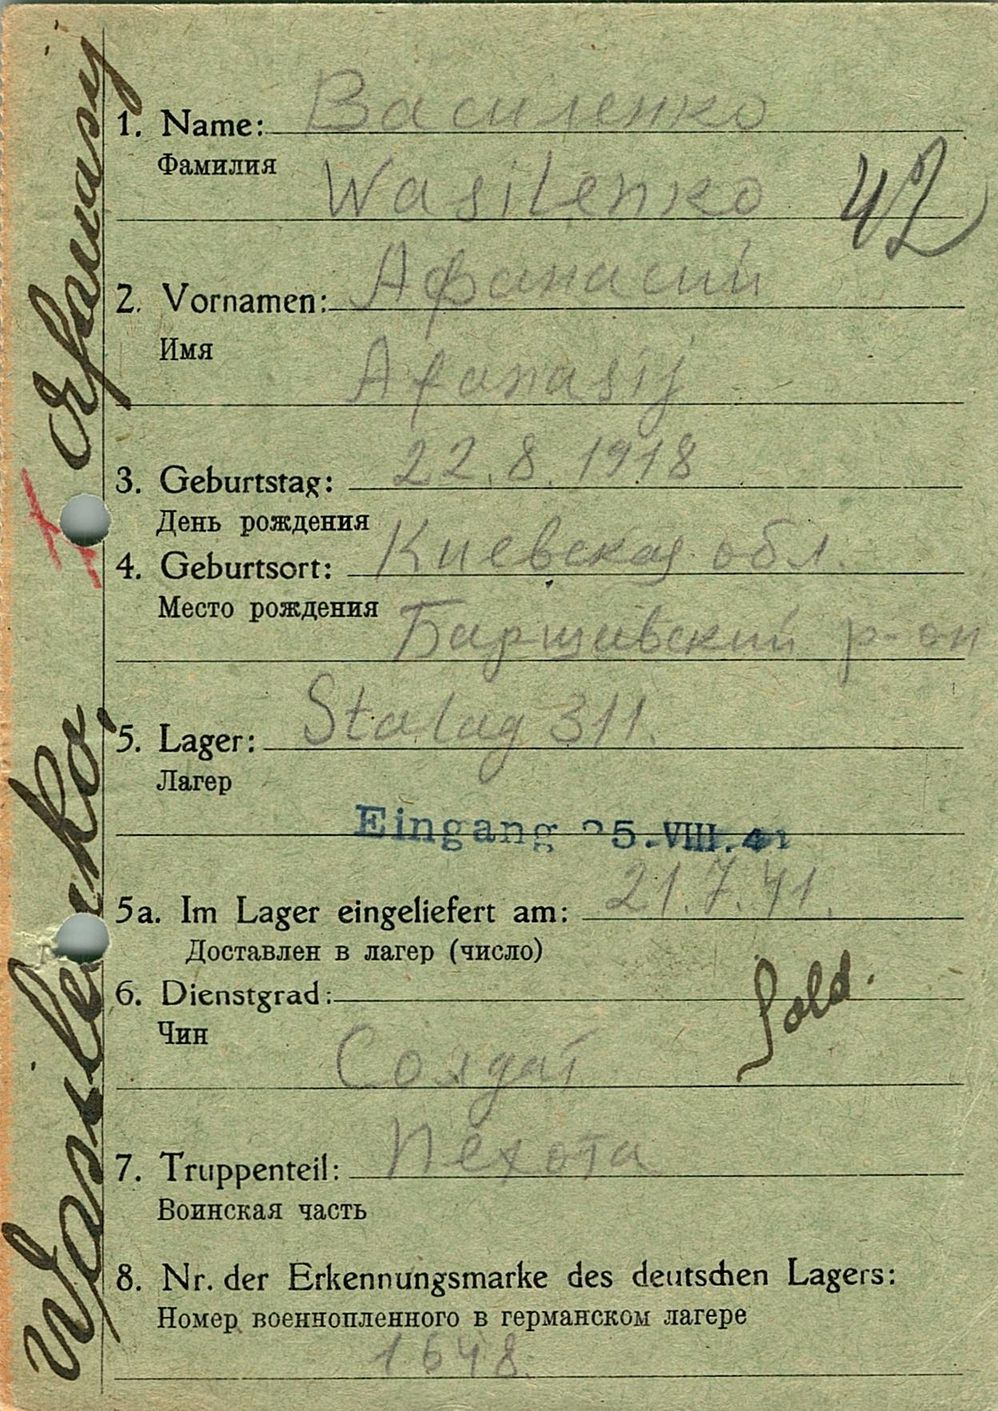 Wasilenko, Afanasij
1. Name: Василенко
Фамилия
Wasilenko
42
2. Vornamen: Афанасий
Имя
Afanasij
3. Geburtstag: 22.8.1918
День рождения
4. Geburtsort: Киевская обл.
Место рождения
Барщивский р-он
5. Lager: Stalag 311.
Лагер
Eingang 25.VIII.41
5a. Im Lager eingeliefert am: 21.7.41.
Доставлен в лагер (число)
6. Dienstgrad: Sold.
Чин
Солдат
7. Truppenteil: Пехота
Воинская часть
8. Nr. der Erkennungsmarke des deutschen Lagers:
Номер военнопленного в германском лагере
1648.